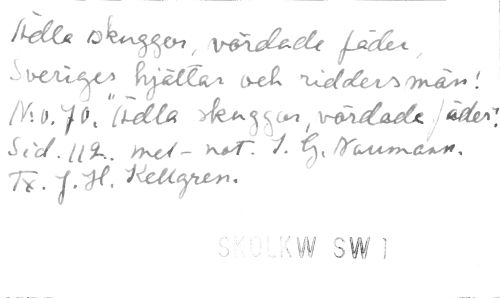 Ädla skuggor, vördade fäder,
Sveriges hjältar och riddersmän!
N:o. 70. "Ädla skuggor, vördade fäder".
Sid. 112. met - not. J. G. Naumann.
Tx. J. H. Kellgren.
SKOLKW SW 1